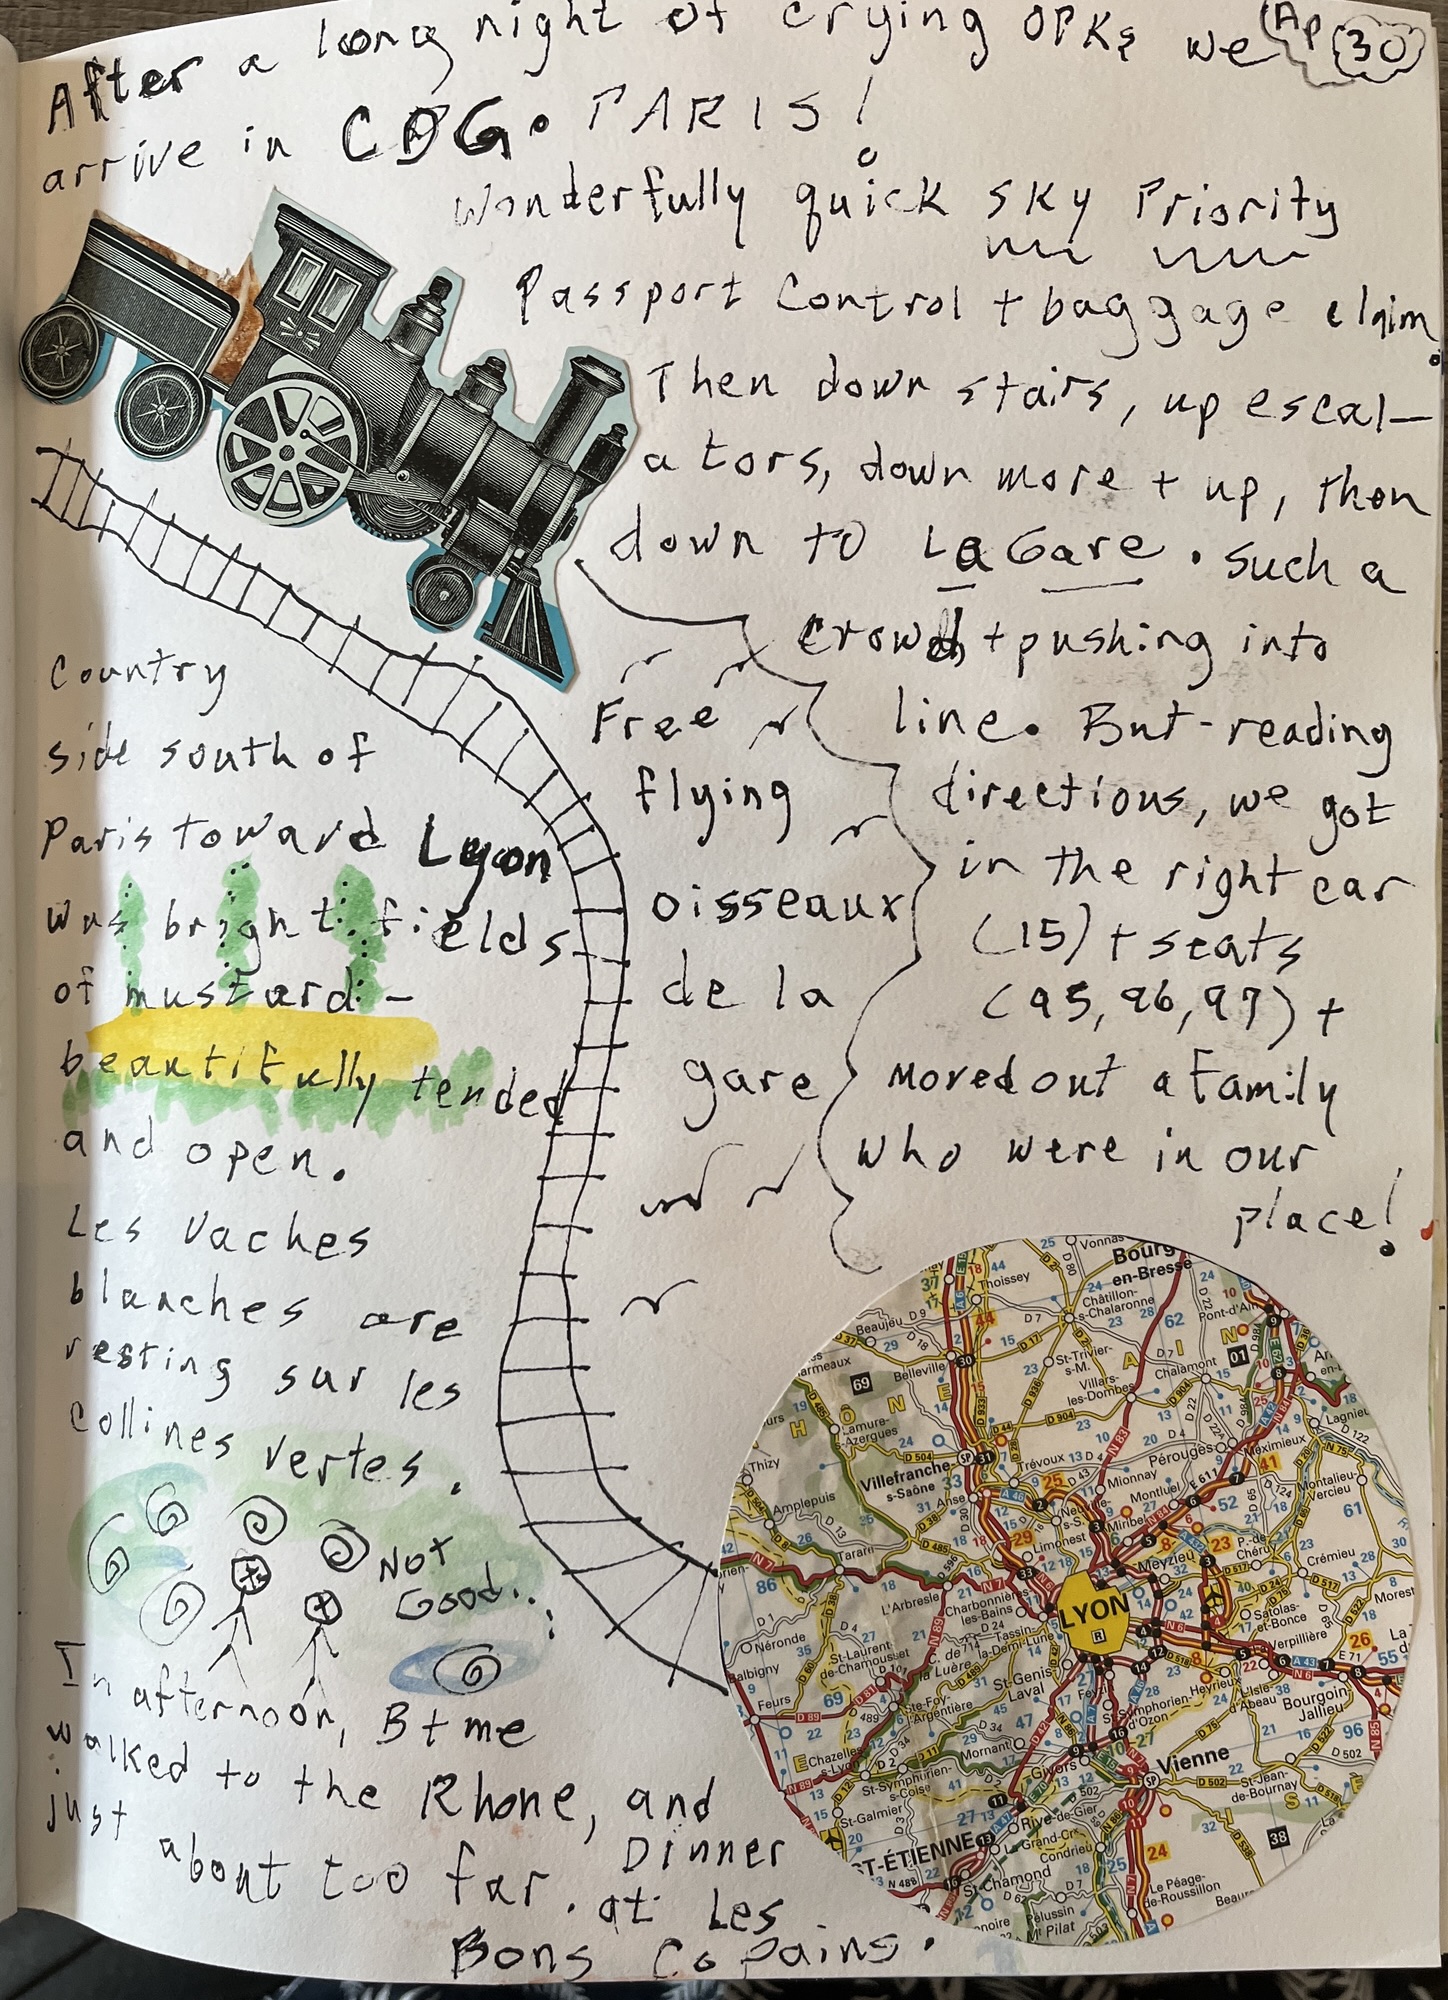 After a long night of crying OPKs we
Ap 30
arrive in CDG. PARIS!
Wonderfully quick SKY Priority
Passport Control + baggage claim.
Then down stairs, up escal-
ators, down more + up, then
down to La Gare. such a
crowd, + pushing into
line. But-reading
directions, we got
in the right car
(15) + seats
(95, 96, 97) +
moved out a family
who were in our
place!
Free
flying
oisseaux
de la
gare
Country
side south of
Paris toward Lyon
was bright fields
of mustard-
beautifully tended
and open.
Les Vaches
blanches are
resting sur les
collines vertes.
Not
Good..
In afternoon, B + me
walked to the Rhone, and
just about too far. Dinner
at Les
Bons Copains.
Bourg-
en-Bresse
Vonnas
Thoissey
Châtillon-
s-Chalaronne
Pont-d'Ain
Beaujeu
Belleville
St-Trivier-
s-M.
Chalamont
Villars-
les-Dombes
Lamure-
s-Azergues
Lagnieu
Thizy
Villefranche-
s-Saône
Trévoux
Pérouges
Meximieux
Mionnay
Montluel
Montalieu-
Vercieu
Amplepuis
Anse
Neuville-
s-S.
Miribel
Tarare
Limonest
Meyzieu
P.-de-
Chéruy
Crémieu
L'Arbresle
Charbonnières-
les-Bains
LYON
Satolas-
et-Bonce
Morest
Néronde
Tassin-
la-Demi-Lune
Verpillière
Balbigny
St-Laurent-
de-Chamousset
St-Genis-
Laval
Heyrieux
L'Isle-
d'Abeau
Bourgoin-
Jallieu
Feurs
Ste-Foy-
l'Argentière
St-Symphorien-
d'Ozon
Chazelles-
s-Lyon
Mornant
Givors
Vienne
St-Symphorien-
s-Coise
St-Jean-
de-Bournay
St-Galmier
Rive-de-Gier
Grand-Cx
Condrieu
ST-ÉTIENNE
St-Chamond
Le Péage-
de-Roussillon
Pélussin
Mt Pilat